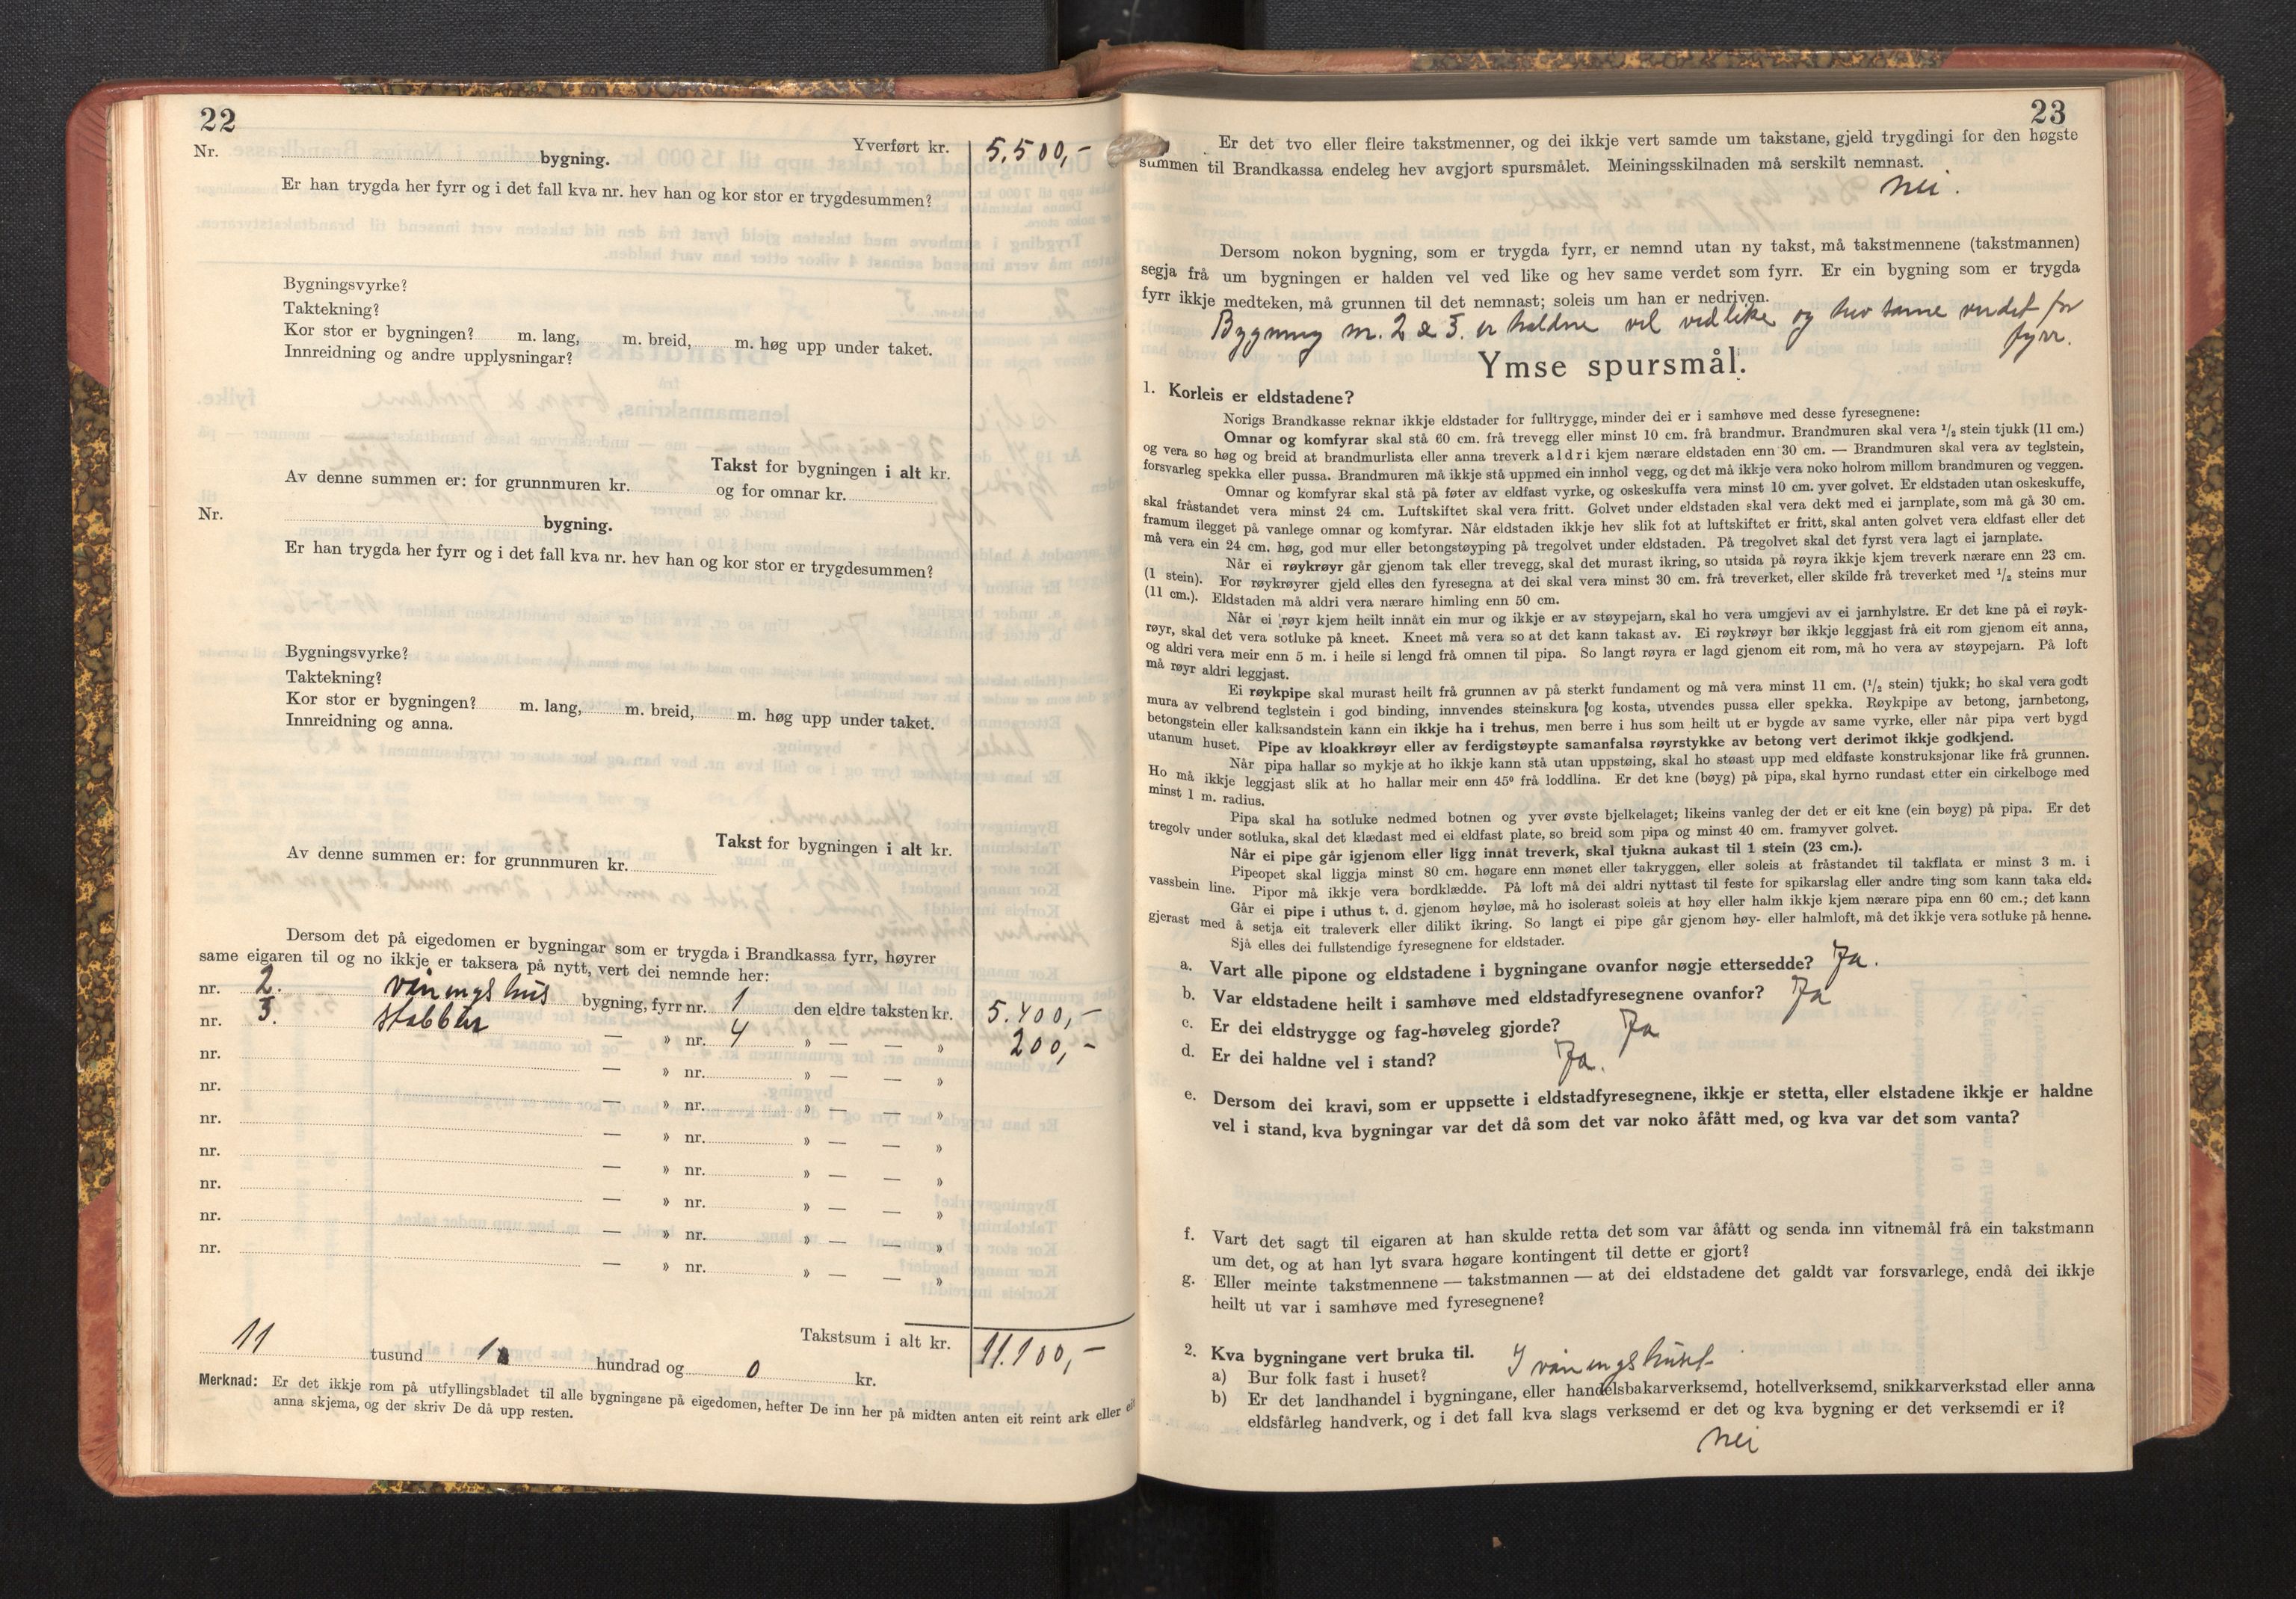 22
Yverført kr. 5.500,-
Nr. bygning.
Er han trygda her fyrr og i det fall kva nr. hev han og kor stor er trygdesummen?
Bygningsvyrke?
Taktekning?
Kor stor er bygningen? m. lang, m. breid, m. høg upp under taket.
Innreidning og andre upplysningar?
Takst for bygningen i alt kr.
Av denne summen er: for grunnmuren kr. og for omnar kr.
Nr. bygning.
Er han trygda her fyrr og i det fall kva nr. hev han og kor stor er trygdesummen?
Bygningsvyrke?
Taktekning?
Kor stor er bygningen? m. lang, m. breid, m. høg upp under taket.
Innreidning og anna.
Takst for bygningen i alt kr.
Av denne summen er: for grunnmuren kr.
Dersom det på eigedomen er bygningar som er trygda i Brandkassa fyrr, høyrer
same eigaren til og no ikkje er taksera på nytt, vert dei nemnde her:
nr. 2. våningshus bygning, fyrr nr. 1 den eldre taksten kr. 5.400,-
nr. 3. stabbur — » nr. 4 » — — » 200,-
nr. — » nr. » — — »
nr. — » nr. » — — »
nr. — » nr. » — — »
nr. — » nr. » — — »
nr. — » nr. » — — »
nr. — » nr. » — — »
nr. — » nr. » — — »
Takstsum i alt kr. 11.100,-
11 tusund 1 hundrad og 0 kr.
Merknad: Er det ikkje rom på utfyllingsbladet til alle bygningane på eigedomen, hefter De inn her på midten anten eit reint ark eller
anna skjema, og der skriv De då upp resten.
23
Er det tvo eller fleire takstmenner, og dei ikkje vert samde um takstane, gjeld trygdingi for den høgste
summen til Brandkassa endeleg hev avgjort spursmålet. Meiningsskilnaden må serskilt nemnast.
Nei.
Dersom nokon bygning, som er trygda fyrr, er nemnd utan ny takst, må takstmennene (takstmannen)
segja frå um bygningen er halden vel ved like og hev same verdet som fyrr. Er ein bygning som er trygda
fyrr ikkje medteken, må grunnen til det nemnast; soleis um han er nedriven.
Bygning nr. 2 & 3. er haldne vel vedlike og hev same verdet for
fyrr.
Ymse spursmål.
1. Korleis er eldstadene?
Norigs Brandkasse reknar ikkje eldstader for fulltrygge, minder dei er i samhøve med desse fyresegnene:
Omnar og komfyrar skal stå 60 cm. frå trevegg eller minst 10 cm. frå brandmur. Brandmuren skal vera 1/2 stein tjukk (11 cm.)
og vera so høg og breid at brandmurlista eller anna treverk aldri kjem nærare eldstaden enn 30 cm. — Brandmuren skal vera av teglstein,
forsvarleg spekka eller pussa. Brandmuren må ikkje stå uppmed ein innhol vegg, og det må ikkje vera noko holrom millom brandmuren og veggen.
Omnar og komfyrar skal stå på føter av eldfast vyrke, og oskeskuffa vera minst 10 cm. yver golvet. Er eldstaden utan oskeskuffe,
skal fråstandet vera minst 24 cm. Luftskiftet skal vera fritt. Golvet under eldstaden skal vera dekt med ei jarnplate, som må gå 30 cm.
framum ilegget på vanlege omnar og komfyrar. Når eldstaden ikkje hev slik fot at luftskiftet er fritt, skal anten golvet vera eldfast eller det
må vera ein 24 cm. høg, god mur eller betongstøyping på tregolvet under eldstaden. På tregolvet skal det fyrst vera lagt ei jarnplate.
Når ei røykrøyr går gjenom tak eller trevegg, skal det murast ikring, so utsida på røyra ikkje kjem treverk nærare enn 23 cm.
(1 stein). For røykrøyrer gjeld elles den fyresegna at dei skal vera minst 30 cm. frå treverket, eller skilde frå treverket med 1/2 steins mur
(11 cm.). Eldstaden må aldri vera nærare himling enn 50 cm.
Når ei røyr kjem heilt innåt ein mur og ikkje er av støypejarn, skal ho vera umgjevi av ei jarnhylstre. Er det kne på ei røyk-
røyr, skal det vera sotluke på kneet. Kneet må vera so at det kann takast av. Ei røykrøyr bør ikkje leggjast frå eit rom gjenom eit anna,
og aldri vera meir enn 5 m. i heile si lengd frå omnen til pipa. So langt røyra er lagd gjenom eit rom, må ho vera av støypejarn. På loft
må røyr aldri leggjast.
Ei røykpipe skal murast heilt frå grunnen av på sterkt fundament og må vera minst 11 cm. (1/2 stein) tjukk; ho skal vera godt
mura av velbrend teglstein i god binding, innvendes steinskura og kosta, utvendes pussa eller spekka. Røykpipe av betong, jarnbetong,
betongstein eller kalksandstein kann ein ikkje ha i trehus, men berre i hus som heilt ut er bygde av same vyrke, eller når pipa vert bygd
utanum huset. Pipe av kloakkrøyr eller av ferdigstøypte samanfalsa røyrstykke av betong vert derimot ikkje godkjend.
Når pipa hallar so mykje at ho ikkje kann stå utan uppstøing, skal ho støast upp med eldfaste konstruksjonar like frå grunnen.
Ho må ikkje leggjast slik at ho hallar meir enn 45° frå loddlina. Er det kne (bøyg) på pipa, skal hyrno rundast etter ein cirkelboge med
minst 1 m. radius.
Pipa skal ha sotluke nedmed botnen og yver øvste bjelkelaget; likeins vanleg der det er eit kne (ein bøyg) på pipa. Er det
tregolv under sotluka, skal det klædast med ei eldfast plate, so breid som pipa og minst 40 cm. framyver golvet.
Når ei pipe går igjenom eller ligg innåt treverk, skal tjukna aukast til 1 stein (23 cm.).
Pipeopet skal liggja minst 80 cm. høgare enn mønet eller takryggen, eller soleis at fråstandet til takflata er minst 3 m. i
vassbein line. Pipor må ikkje vera bordklædde. På loft må dei aldri nyttast til feste for spikarslag eller andre ting som kann taka eld.
Går ei pipe i uthus t. d. gjenom høyløe, må ho isolerast soleis at høy eller halm ikkje kjem nærare pipa enn 60 cm.; det kann
gjerast med å setja eit traleverk eller dilikt ikring. So langt ei pipe går gjenom høy- eller halmloft, må det ikkje vera sotluke på henne.
Sjå elles dei fullstendige fyresegnene for eldstader.
a. Vart alle pipone og eldstadene i bygningane ovanfor nøgje ettersedde? Ja.
b. Var eldstadene heilt i samhøve med eldstadfyresegnene ovanfor? Ja
c. Er dei eldstrygge og fag-høveleg gjorde? Ja
d. Er dei haldne vel i stand? Ja.
e. Dersom dei kravi, som er uppsette i eldstadfyresegnene, ikkje er stetta, eller elstadene ikkje er haldne
vel i stand, kva bygningar var det då som det var noko åfått med, og kva var det som vanta?
f. Vart det sagt til eigaren at han skulde retta det som var åfått og senda inn vitnemål frå ein takstmann
um det, og at han lyt svara høgare kontingent til dette er gjort?
g. Eller meinte takstmennene — takstmannen — at dei eldstadene det galdt var forsvarlege, endå dei ikkje
heilt ut var i samhøve med fyresegnene?
2. Kva bygningane vert bruka til.
a) Bur folk fast i huset? I våningshuset
b) Er det landhandel i bygningane, eller handelsbakarverksemd, hotellverksemd, snikkarverkstad eller anna
eldsfårleg handverk, og i det fall kva slags verksemd er det og kva bygning er det verksemdi er i?
Nei